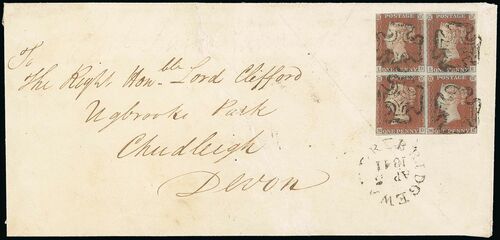 To
The Right Hon.ble Lord Clifford
Ugbrooke Park
Chudleigh
Devon
POSTAGE POSTAGE
ONE PENNY ONE PENNY
POSTAGE POSTAGE
ONE PENNY ONE PENNY
AP
1841